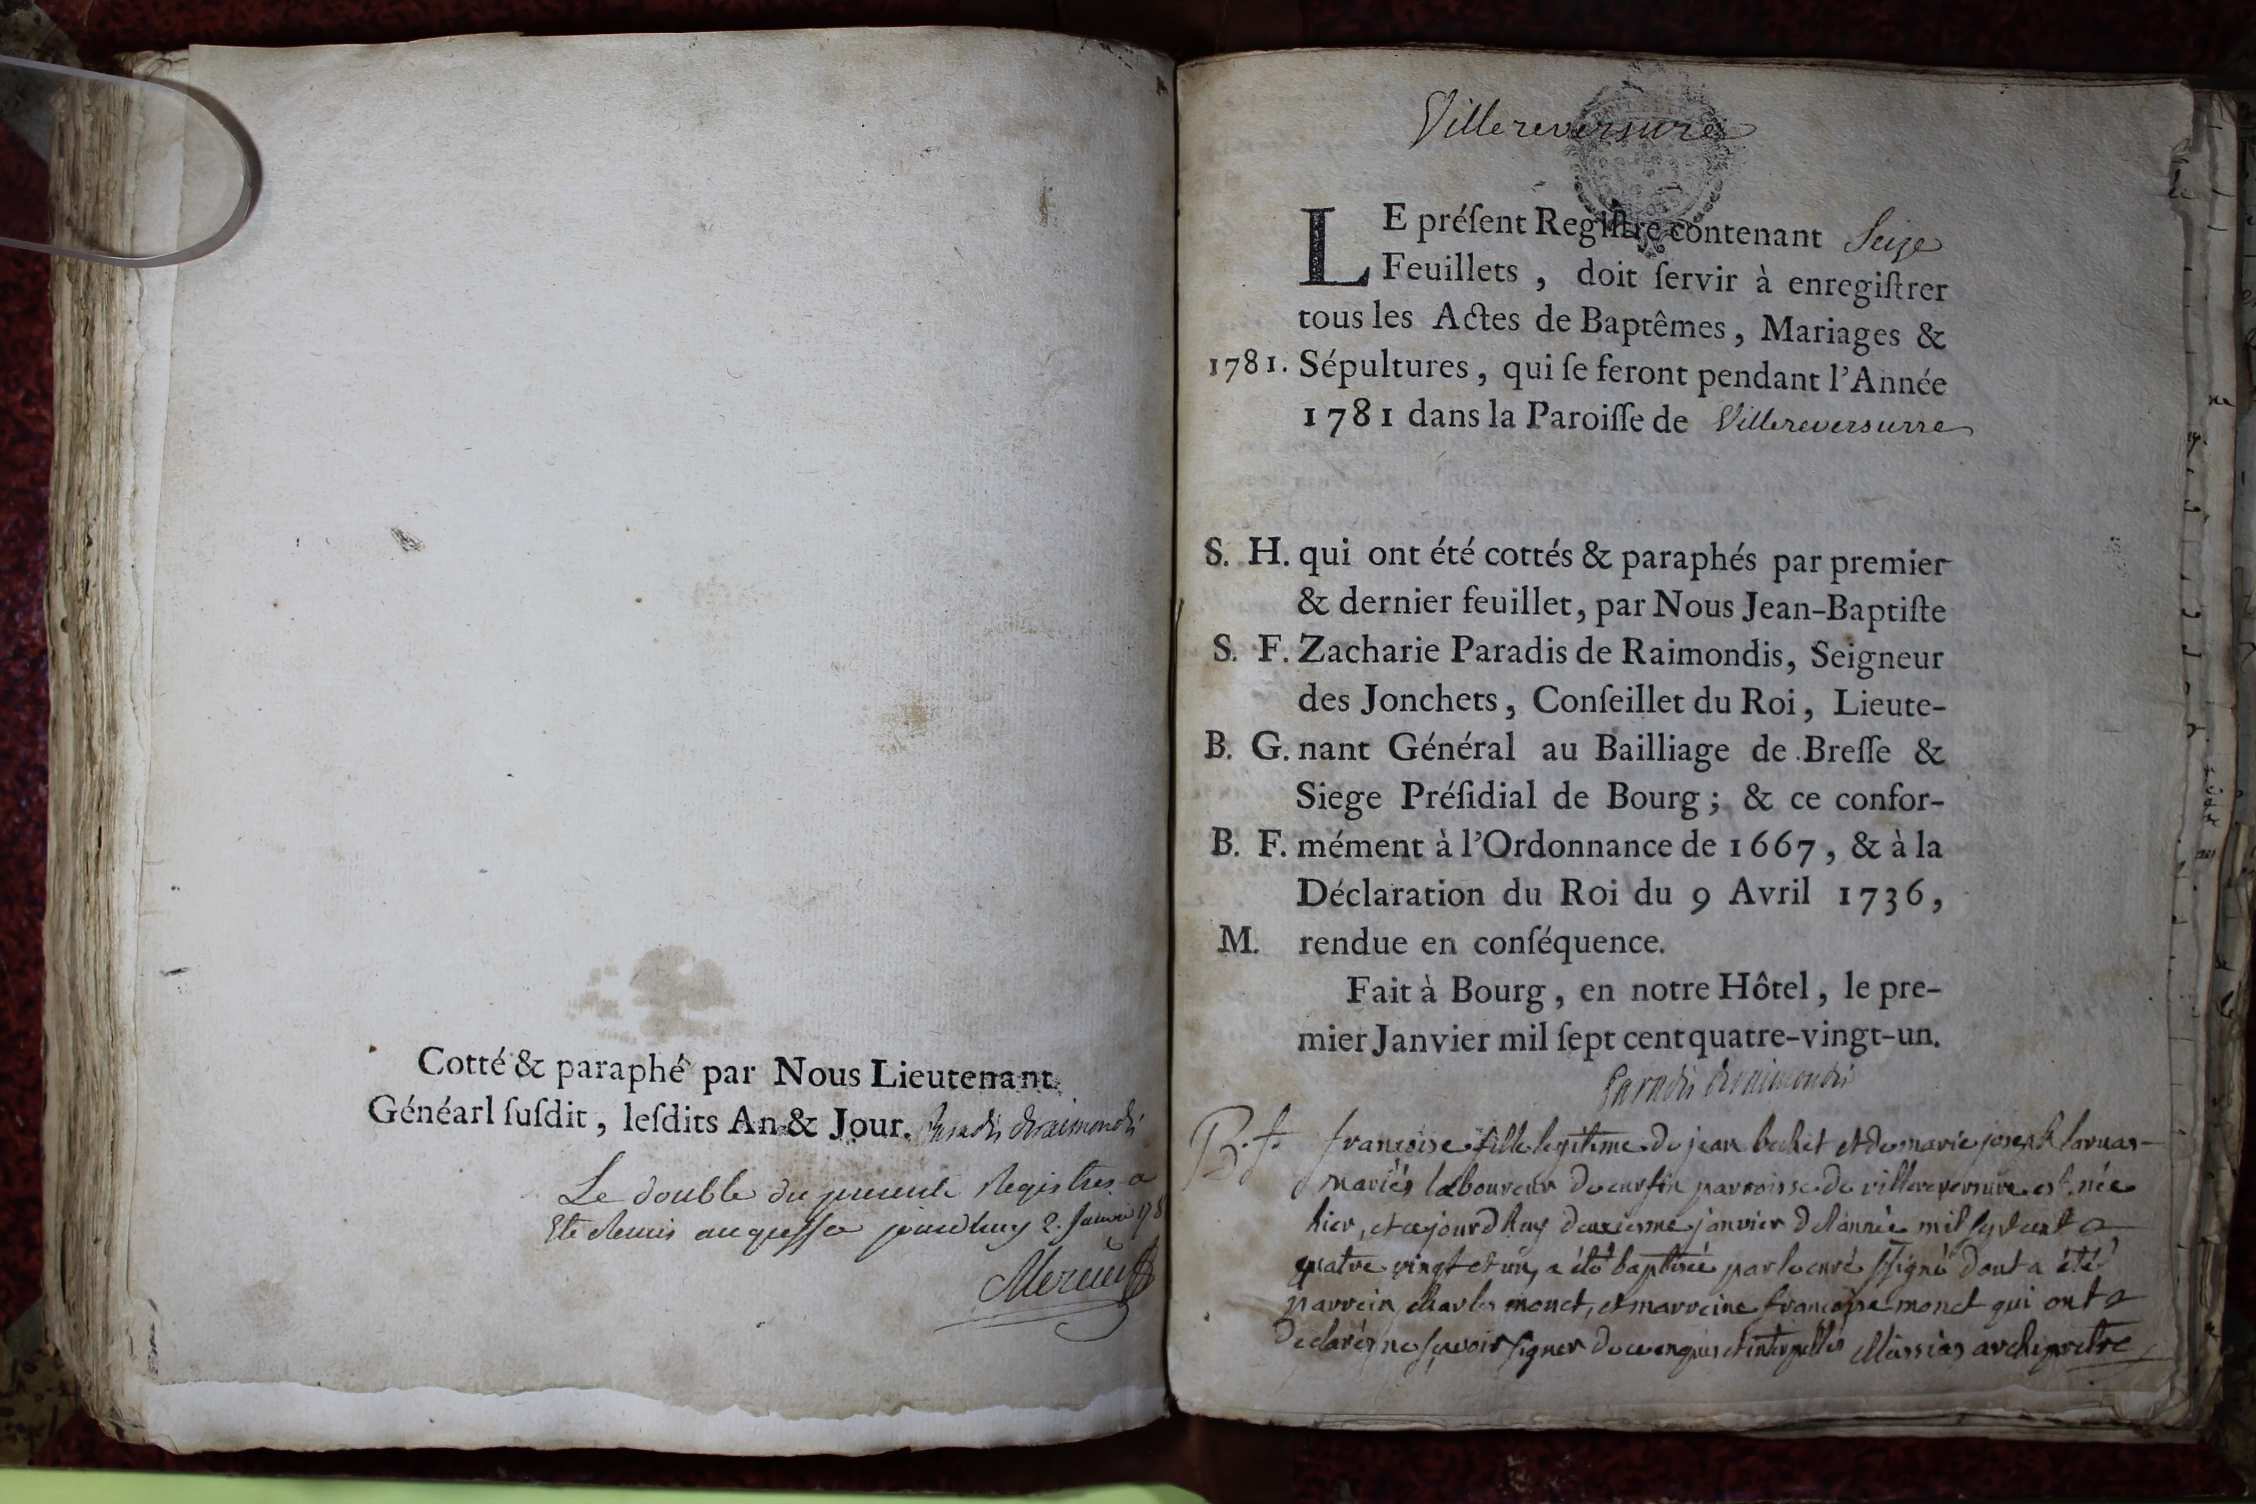 Cotté & paraphé par Nous Lieutenant
Généarl ſuſdit, leſdits An & Jour. Paradis deraimondis
Le double du présent Registres a
Eté Remis au greffe jourdhuy 2. Janvier 178
Villereversure
LE préſent Regiſtre contenant Seize
Feuillets, doit ſervir à enregiſtrer
tous les Actes de Baptêmes, Mariages &
1781. Sépultures, qui ſe feront pendant l'Année
1781 dans la Paroiſſe de Villereversurre
S. H. qui ont été cottés & paraphés par premier
& dernier feuillet, par Nous Jean-Baptiſte
S. F. Zacharie Paradis de Raimondis, Seigneur
des Jonchets, Conſeillet du Roi, Lieute-
B. G. nant Général au Bailliage de Breſſe &
Siege Préſidial de Bourg; & ce confor-
B. F. mément à l'Ordonnance de 1667, & à la
Déclaration du Roi du 9 Avril 1736,
M. rendue en conſéquence.
Fait à Bourg, en notre Hôtel, le pre-
mier Janvier mil ſept cent quatre-vingt-un.
Paradis deraimondis
B. f. francoise fille legitime de jean bechet et de marie joseph
mariés laboureur de curfin parroisse de villereversure est née
hier, et cejourdhuy deuxieme janvier de l'année mil sept cent
quatre vingt et un, a été baptisée par le curé ssigné dont a été
parrein charles monet, et marreine francoise monet qui ont
declarés ne sçavoir signer de ce enquis et interpellés Massias archipretre